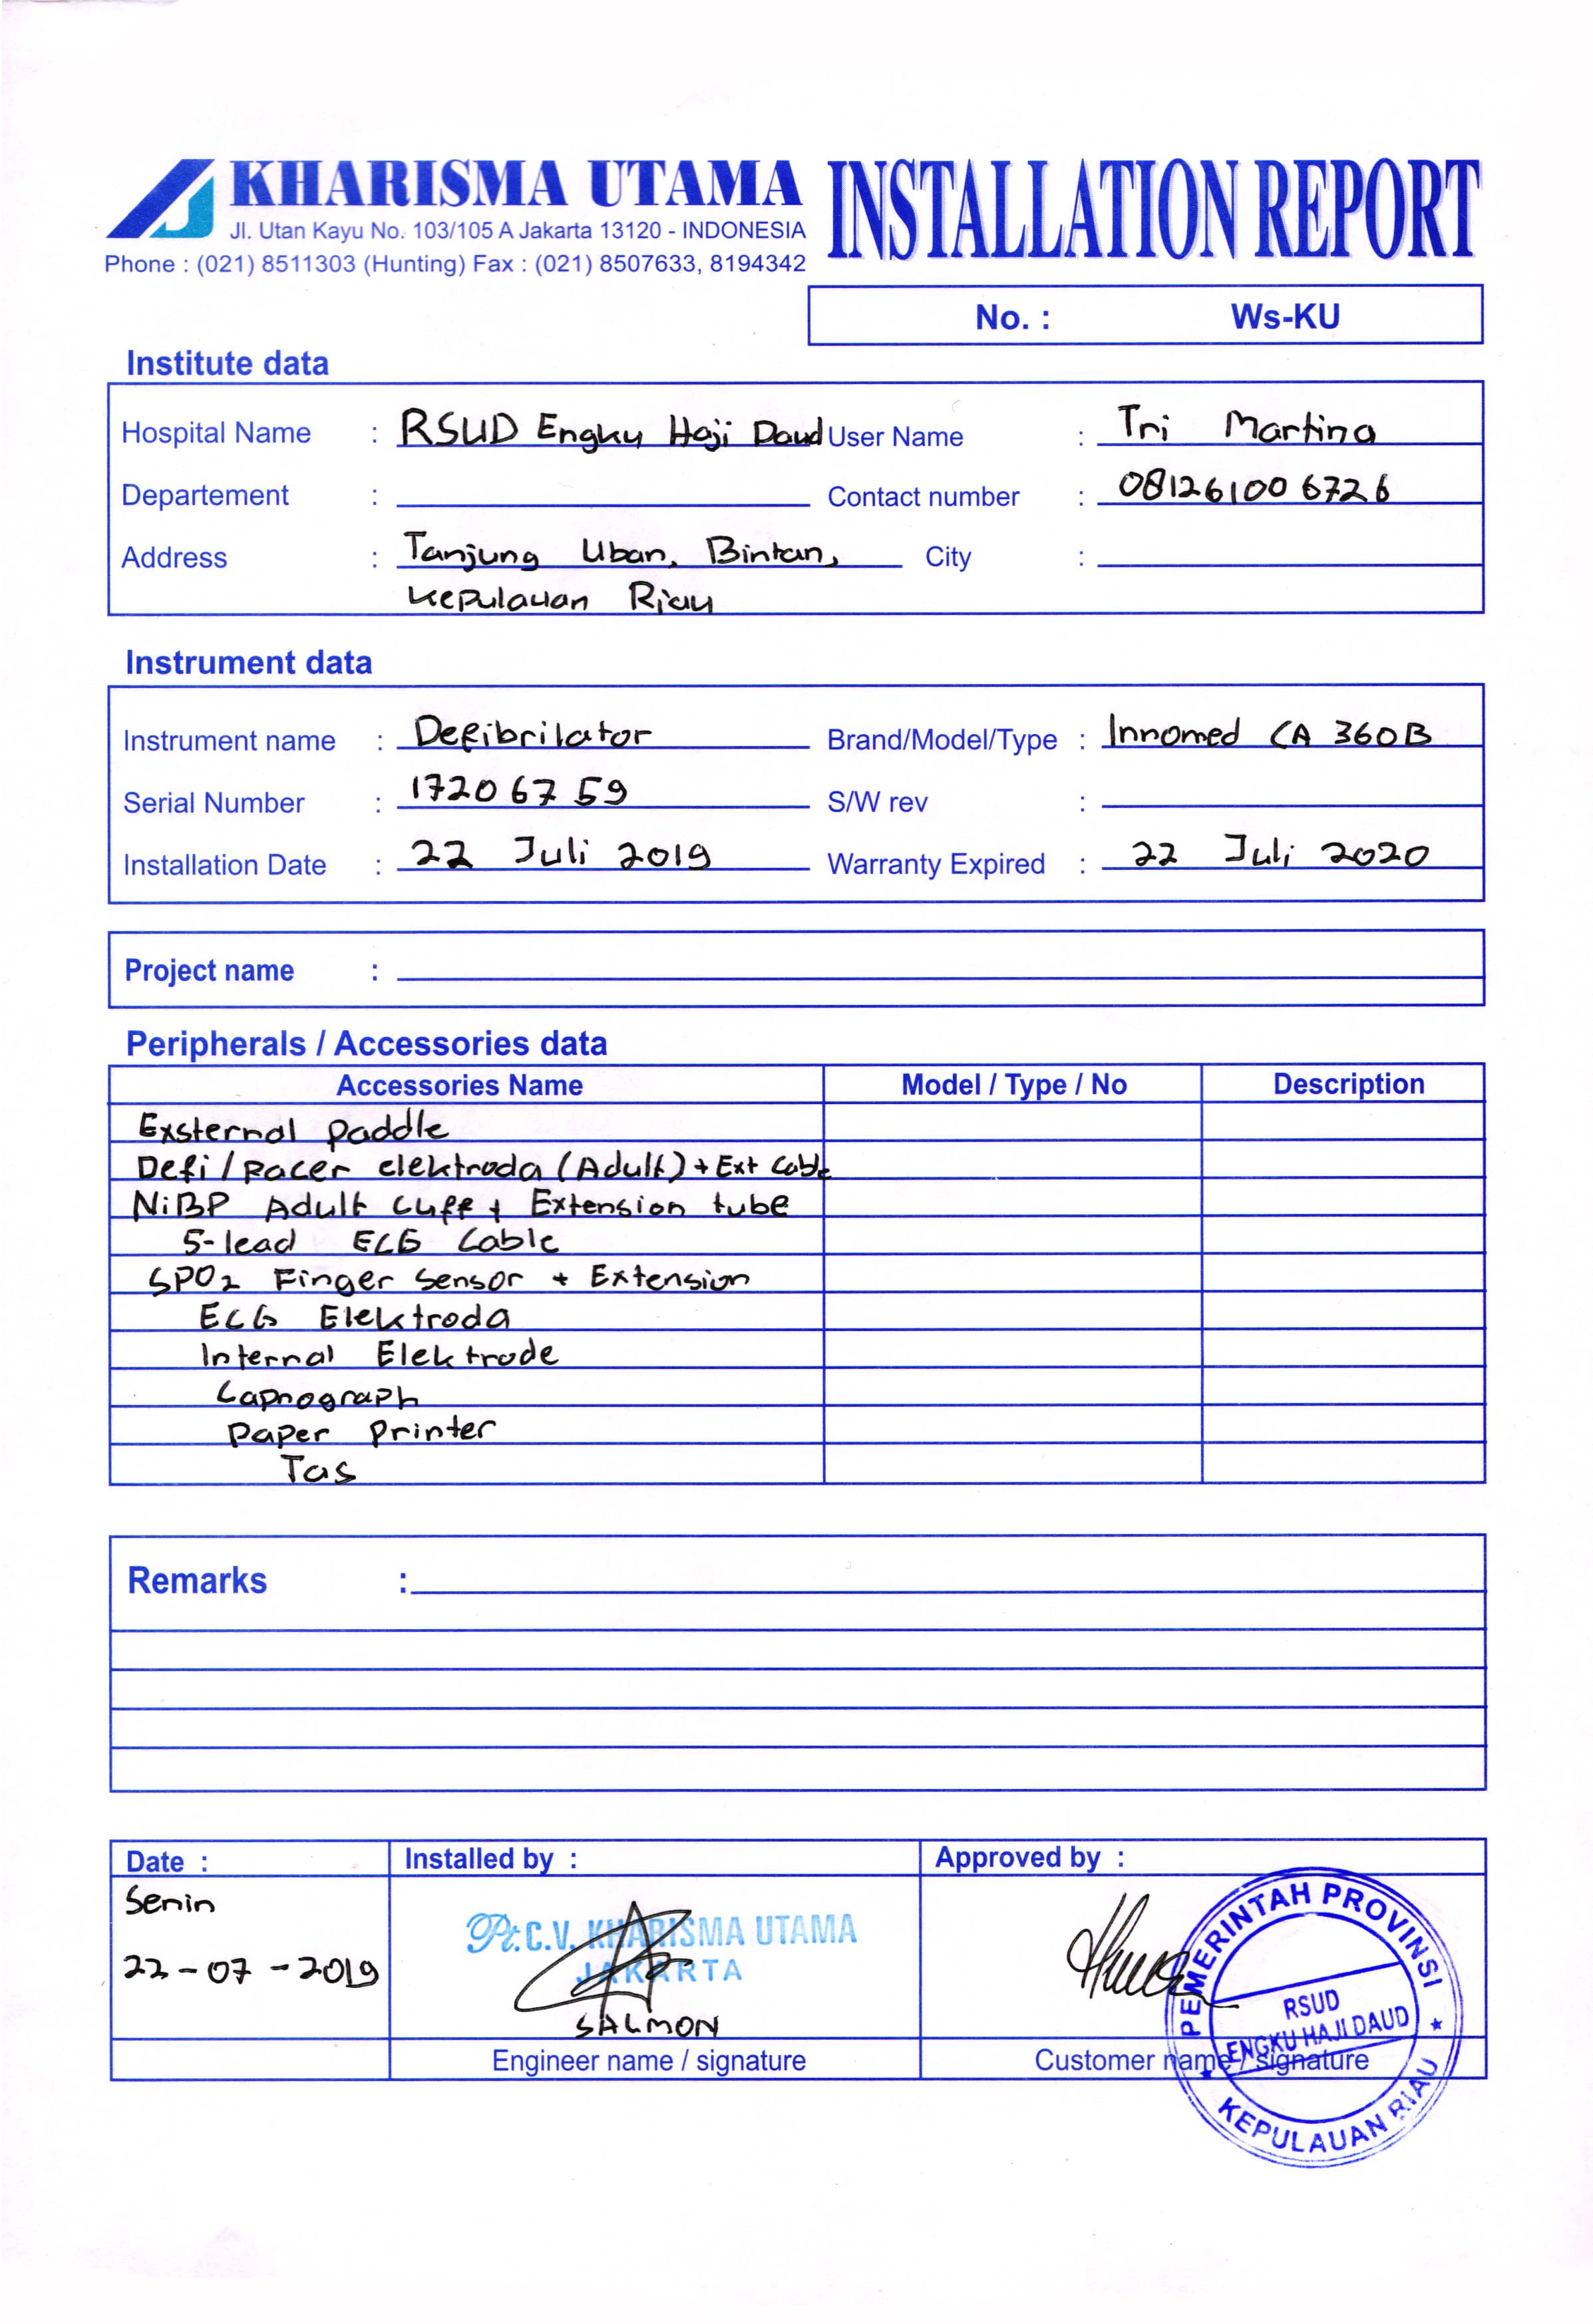 KHARISMA UTAMA
INSTALLATION REPORT
Jl. Utan Kayu No. 103/105 A Jakarta 13120 - INDONESIA
Phone : (021) 8511303 (Hunting) Fax : (021) 8507633, 8194342
No. : Ws-KU
Institute data
Hospital Name : RSUD Engku Haji Daud User Name : Tri Martina
Departement : Contact number : 081261006726
Address : Tanjung Uban, Bintan, City :
Kepulauan Riau
Instrument data
Instrument name : Defibrilator Brand/Model/Type : Innomed CA 360B
Serial Number : 17206759 S/W rev :
Installation Date : 22 Juli 2019 Warranty Expired : 22 Juli 2020
Project name :
Peripherals / Accessories data
Accessories Name Model / Type / No Description
Exsternal paddle
Defi/pacer elektroda (Adult) + Ext Cable
NiBP Adult Cuff + Extension tube
5-lead ECG Cable
SPO2 Finger Sensor + Extension
ECG Elektroda
Internal Elektrode
Capnograph
Paper Printer
Tas
Remarks :
Date : Installed by : Approved by :
Senin
22-07-2019
Pt. C.V. KHARISMA UTAMA
JAKARTA
SALMON
Engineer name / signature
Customer name / signature
PEMERINTAH PROVINSI
RSUD
ENGKU HAJI DAUD
KEPULAUAN RIAU